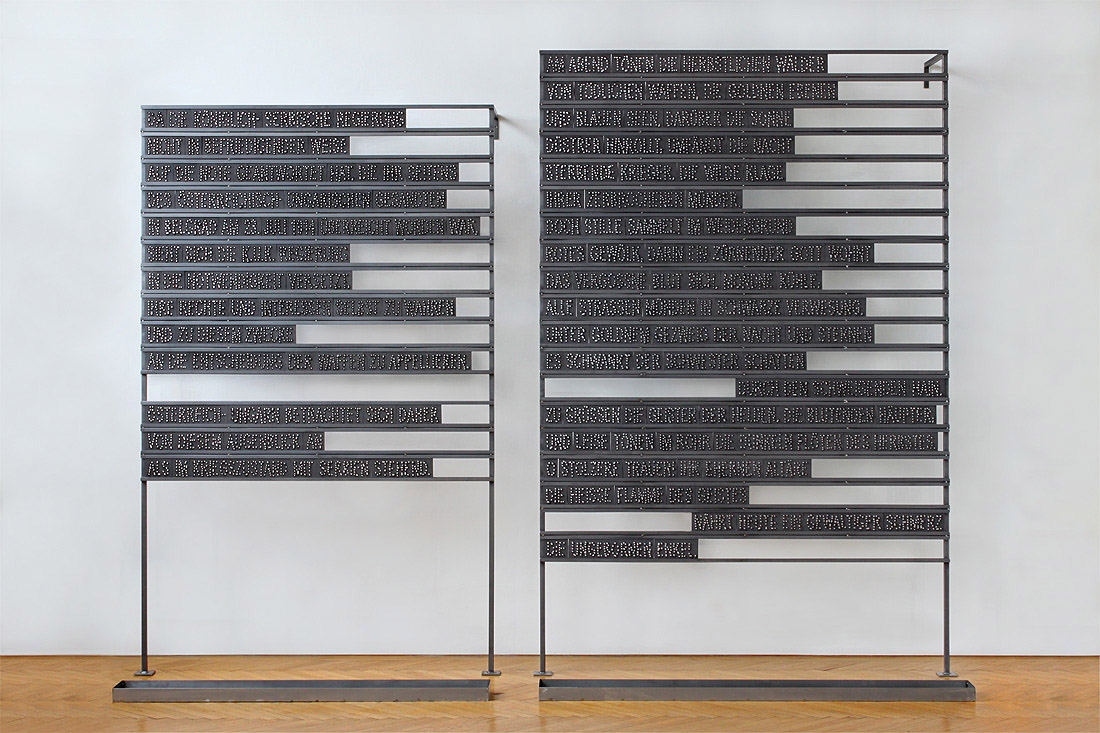 DA DIE KÖNIGLICH-SERBISCHE REGIERUNG
NICHT IN BEFRIEDIGENDER WEISE
AUF DIE NOTE GEANTWORTET HAT, DIE IHR SEITENS
DES ÖSTERREICHISCH-UNGARISCHEN GESANDTEN
IN BELGRAD AM 23. JULI 1914 ÜBERREICHT WORDEN WAR,
SIEHT SICH DIE K.U.K. REGIERUNG
IN DIE NOTWENDIGKEIT VERSETZT,
IHRE RECHTE UND INTERESSEN SELBST ZU WAHREN
UND ZU DIESEM ZWECKE
AN DIE ENTSCHEIDUNG DER WAFFEN ZU APPELLIEREN.
ÖSTERREICH-UNGARN BETRACHTET SICH DAHER
VON DIESEM AUGENBLICK AN
ALS IM KRIEGSZUSTAND MIT SERBIEN STEHEND.
AM ABEND TÖNEN DIE HERBSTLICHEN WÄLDER
VON TÖDLICHEN WAFFEN, DIE GOLDNEN EBENEN
UND BLAUEN SEEN, DARÜBER DIE SONNE
DÜSTRER HINROLLT; UMFÄNGT DIE NACHT
STERBENDE KRIEGER, DIE WILDE KLAGE
IHRER ZERBROCHENEN MÜNDER.
DOCH STILLE SAMMELT IM WEIDENGRUND
ROTES GEWÖLK, DARIN EIN ZÜRNENDER GOTT WOHNT
DAS VERGOSSNE BLUT SICH, MONDNE KÜHLE;
ALLE STRASSEN MÜNDEN IN SCHWARZE VERWESUNG.
UNTER GOLDNEM GEZWEIG DER NACHT UND STERNEN
ES SCHWANKT DER SCHWESTER SCHATTEN
DURCH DEN SCHWEIGENDEN HAIN,
ZU GRÜSSEN DIE GEISTER DER HELDEN, DIE BLUTENDEN HÄUPTER;
UND LEISE TÖNEN IM ROHR DIE DUNKELN FLÖTEN DES HERBSTES.
O STOLZERE TRAUER! IHR EHERNEN ALTÄRE
DIE HEISSE FLAMME DES GEISTES
NÄHRT HEUTE EIN GEWALTIGER SCHMERZ,
DIE UNGEBORNEN ENKEL.